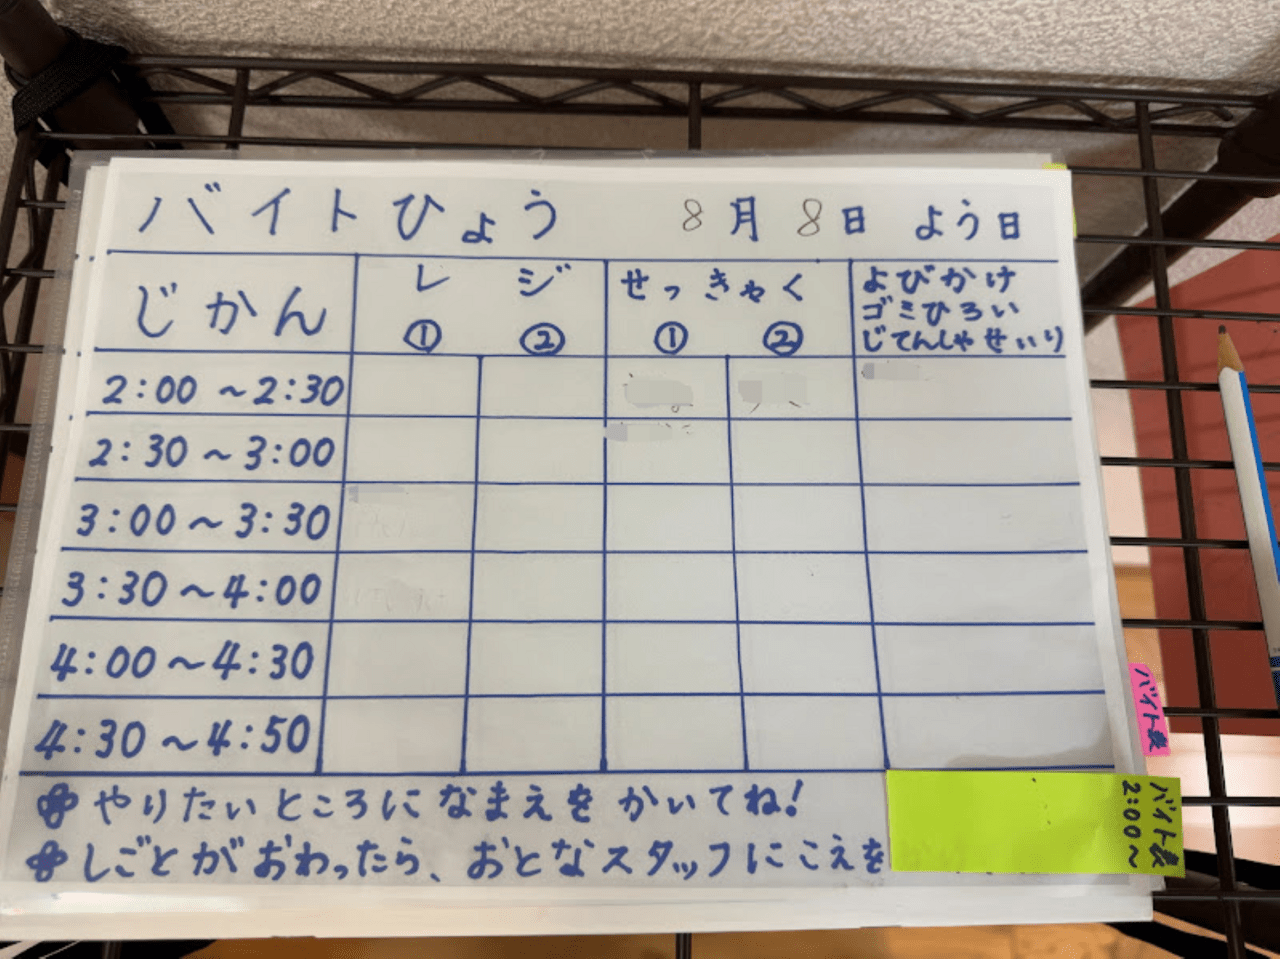 バイトひょう 8月8日 よう日
じかん レジ せっきゃく よびかけ
ゴミひろい
① ② ① ② じてんしゃせいり
2:00 ~2:30
2:30 ~3:00
3:00~3:30
3:30~4:00
4:00~4:30
4:30~4:50
やりたいところになまえをかいてね!
しごとがおわったら、おとなスタッフにこえを
バイト表
バイト表
2:00~